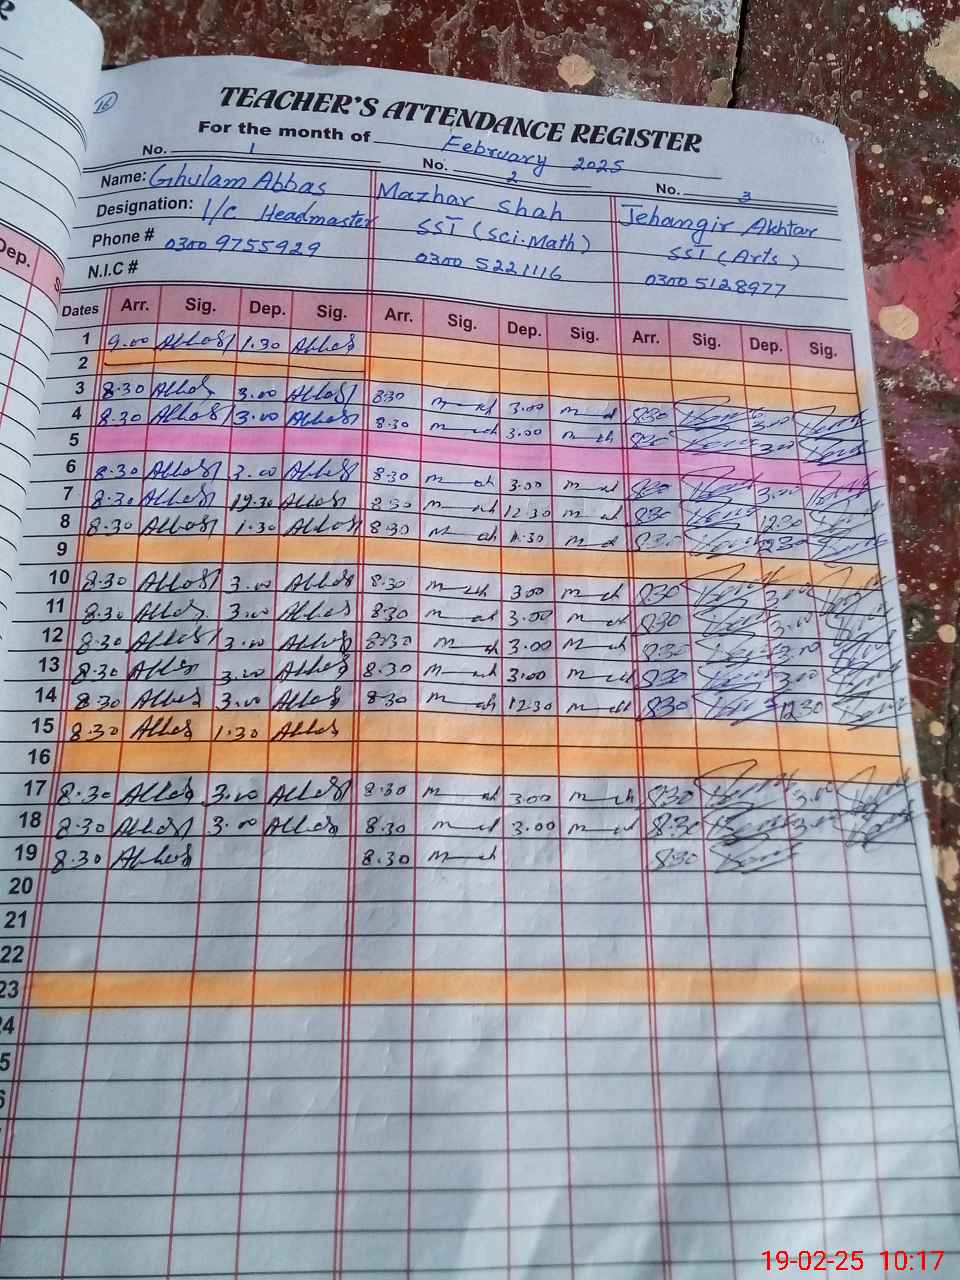 R
16
TEACHER'S ATTENDANCE REGISTER
For the month of February 2025
No. 1 No. 2 No. 3
Name: Ghulam Abbas Mazhar Shah Jehangir Akhtar
Designation: I/C Headmaster SST (Sci.Math) SST (Arts)
Phone # 0300 9755929 0300 5221116 0300 5128977
N.I.C #
Dep. S
Dates Arr. Sig. Dep. Sig. Arr. Sig. Dep. Sig. Arr. Sig. Dep. Sig.
1 9.00 Abbas 1.30 Abbas
2
3 8.30 Abbas 3.00 Abbas 8.30 3.00 8.30 3.00
4 8.30 Abbas 3.00 Abbas 8.30 3.00 8.30 3.00
5
6 8.30 Abbas 3.00 Abbas 8.30 3.00 8.30 3.00
7 8.30 Abbas 12.30 Abbas 8.30 12.30 8.30 12.30
8 8.30 Abbas 1.30 Abbas 8.30 8.30
9
10 8.30 Abbas 3.00 Abbas 8.30 3.00 8.30 3.00
11 8.30 Abbas 3.00 Abbas 8.30 3.00 8.30 3.00
12 8.30 Abbas 3.00 Abbas 8.30 3.00 8.30 3.00
13 8.30 Abbas 3.00 Abbas 8.30 3.00 8.30 3.00
14 8.30 Abbas 3.00 Abbas 8.30 12.30 8.30 12.30
15 8.30 Abbas 1.30 Abbas
16
17 8.30 Abbas 3.00 Abbas 8.30 3.00 8.30 3.00
18 8.30 Abbas 3.00 Abbas 8.30 3.00 8.30 3.00
19 8.30 Abbas 8.30 8.30
20
21
22
23
4
5
6
19-02-25 10:17